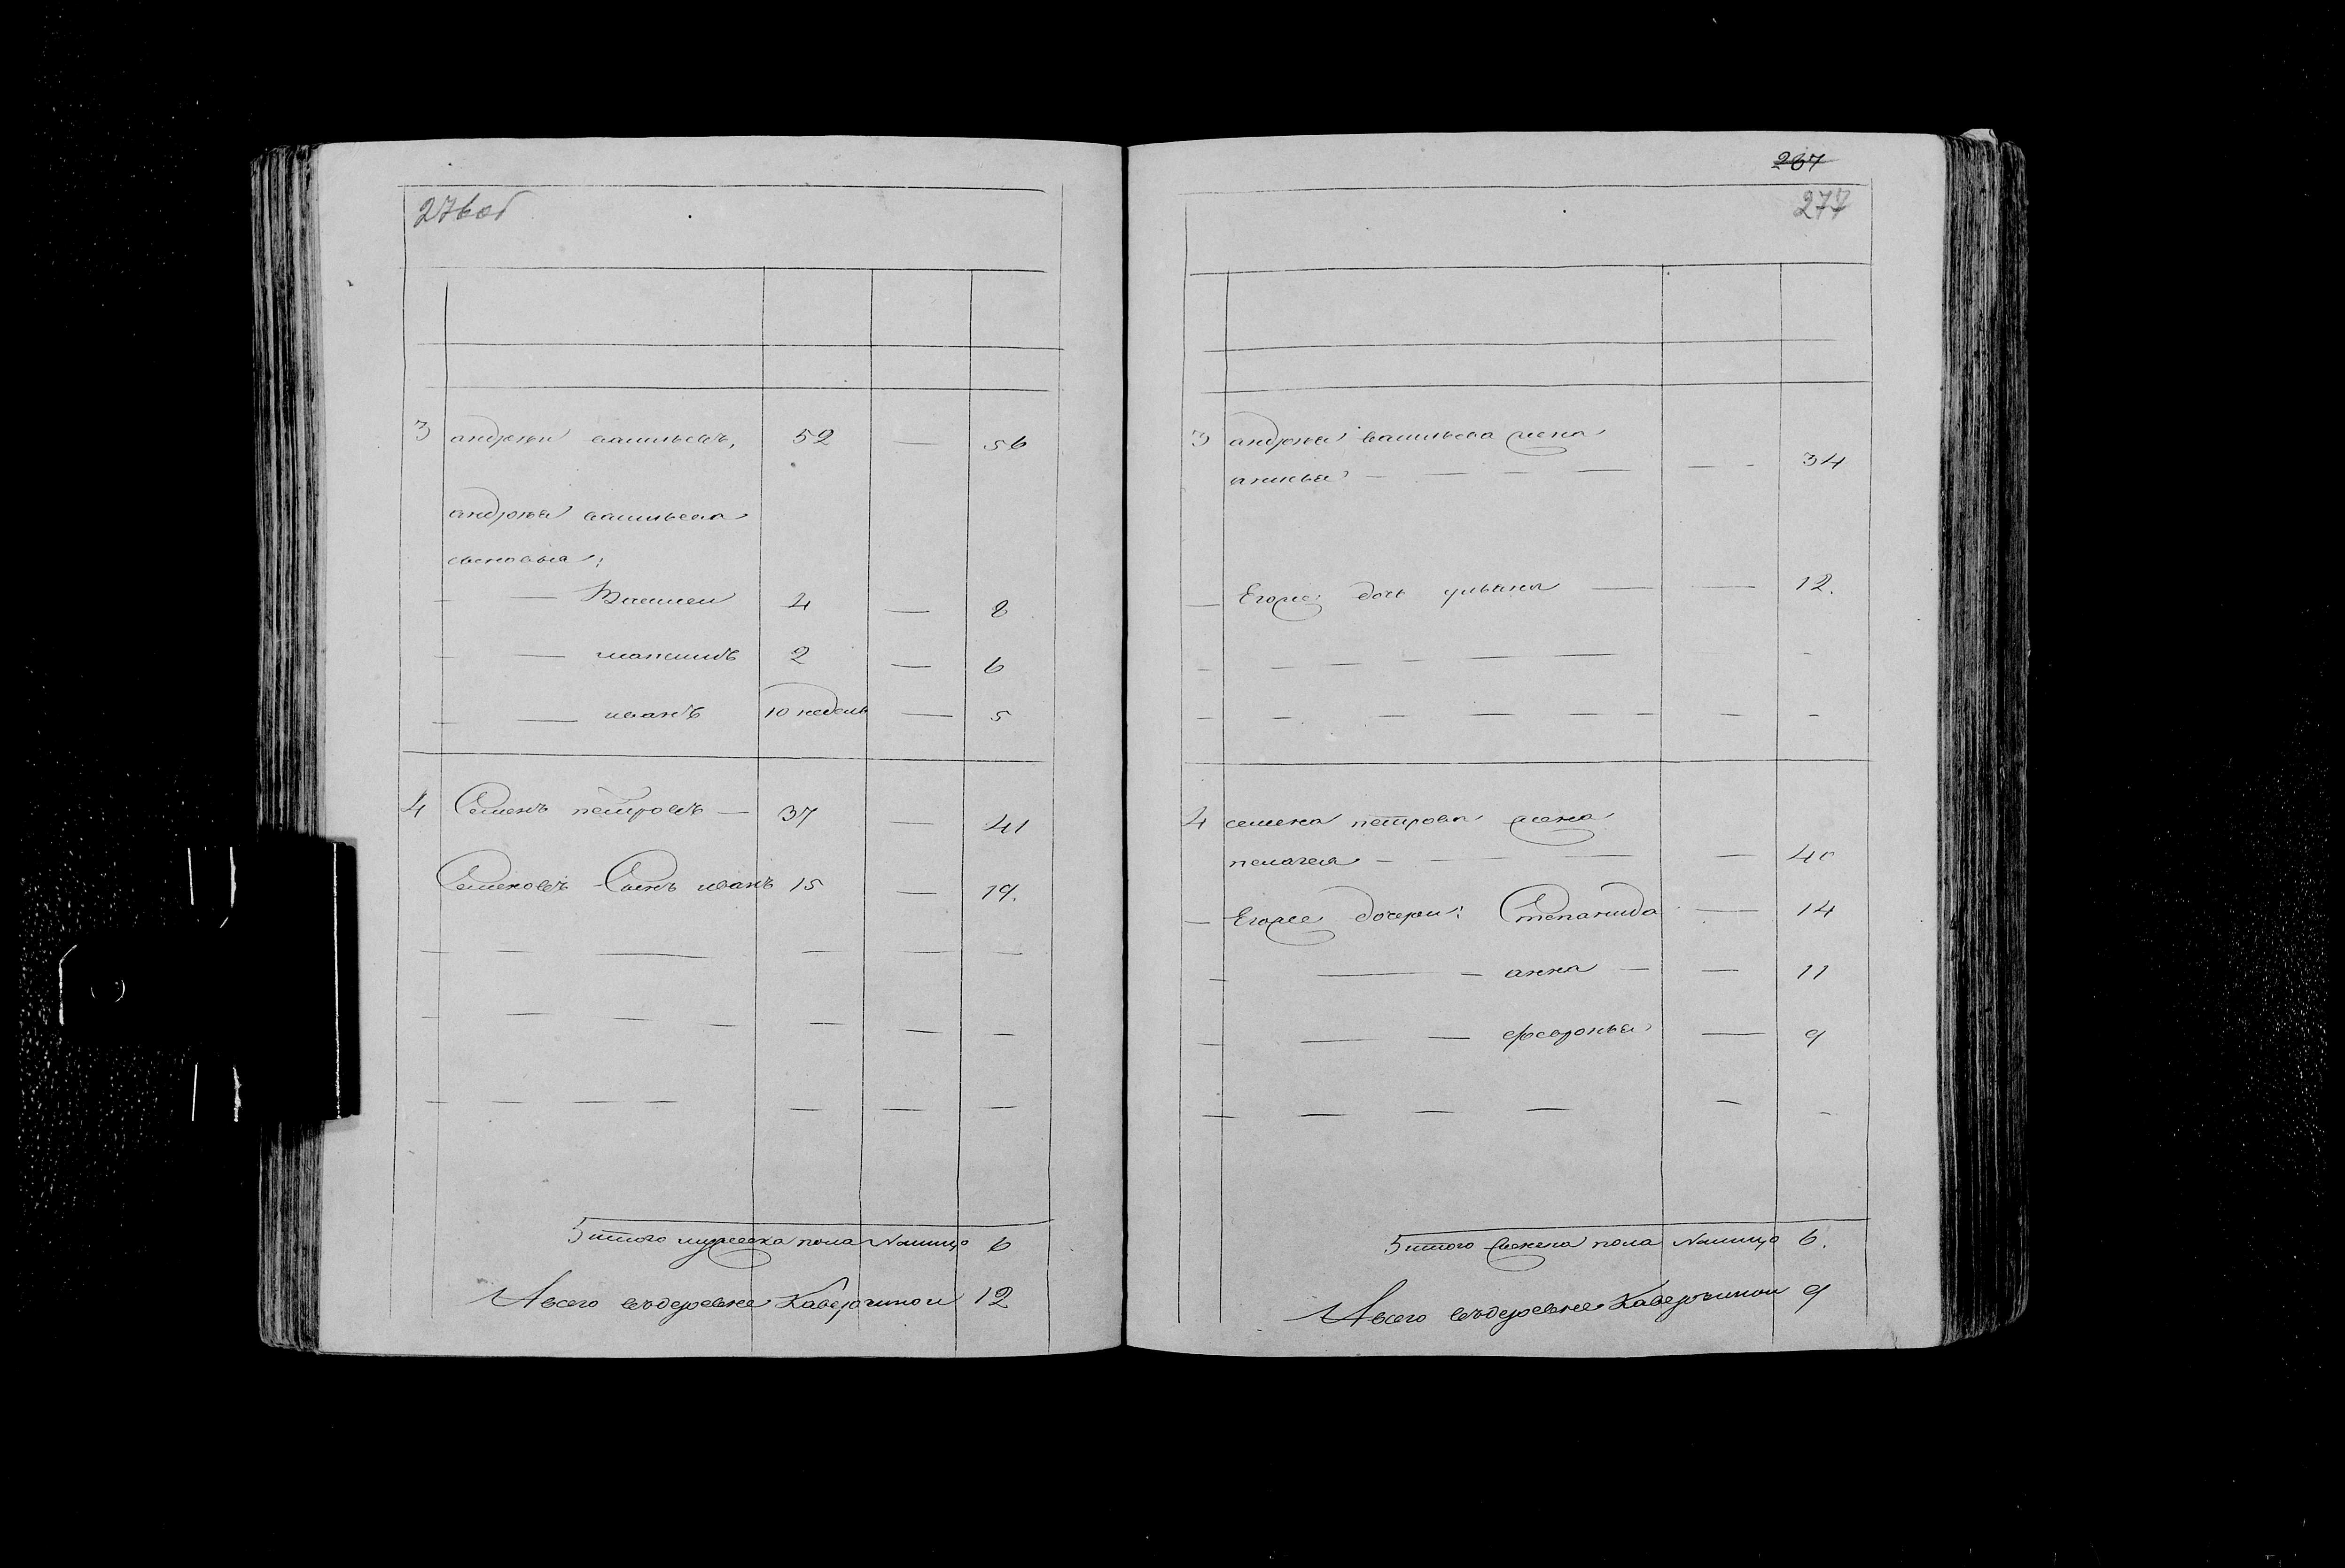 276 об
3 андрѣй васильевъ, 52 — 56
андрѣя васильева
сыновья:
— — Василей 4 — 8
— — максимъ 2 — 6
— — иванъ 10 недель — 5
4 Семенъ петровъ — 37 — 41
Семеновъ Сынъ иванъ 15 — 19.
итого мужеска пола Налицо 6
А всего въ деревне Каверзиной 12
267
277
3 андрѣя васильева жена
— — — — — — 34
— Егоже дочь ульяна — — 12.
4 семена петрова жена
пелагея — — — — 40
— Егоже дочери: Степанида — 14
— — — анна — — 11
— — — февронья — 9
итого женска пола Налицо 6.
А всего въ деревне Каверзиной 9